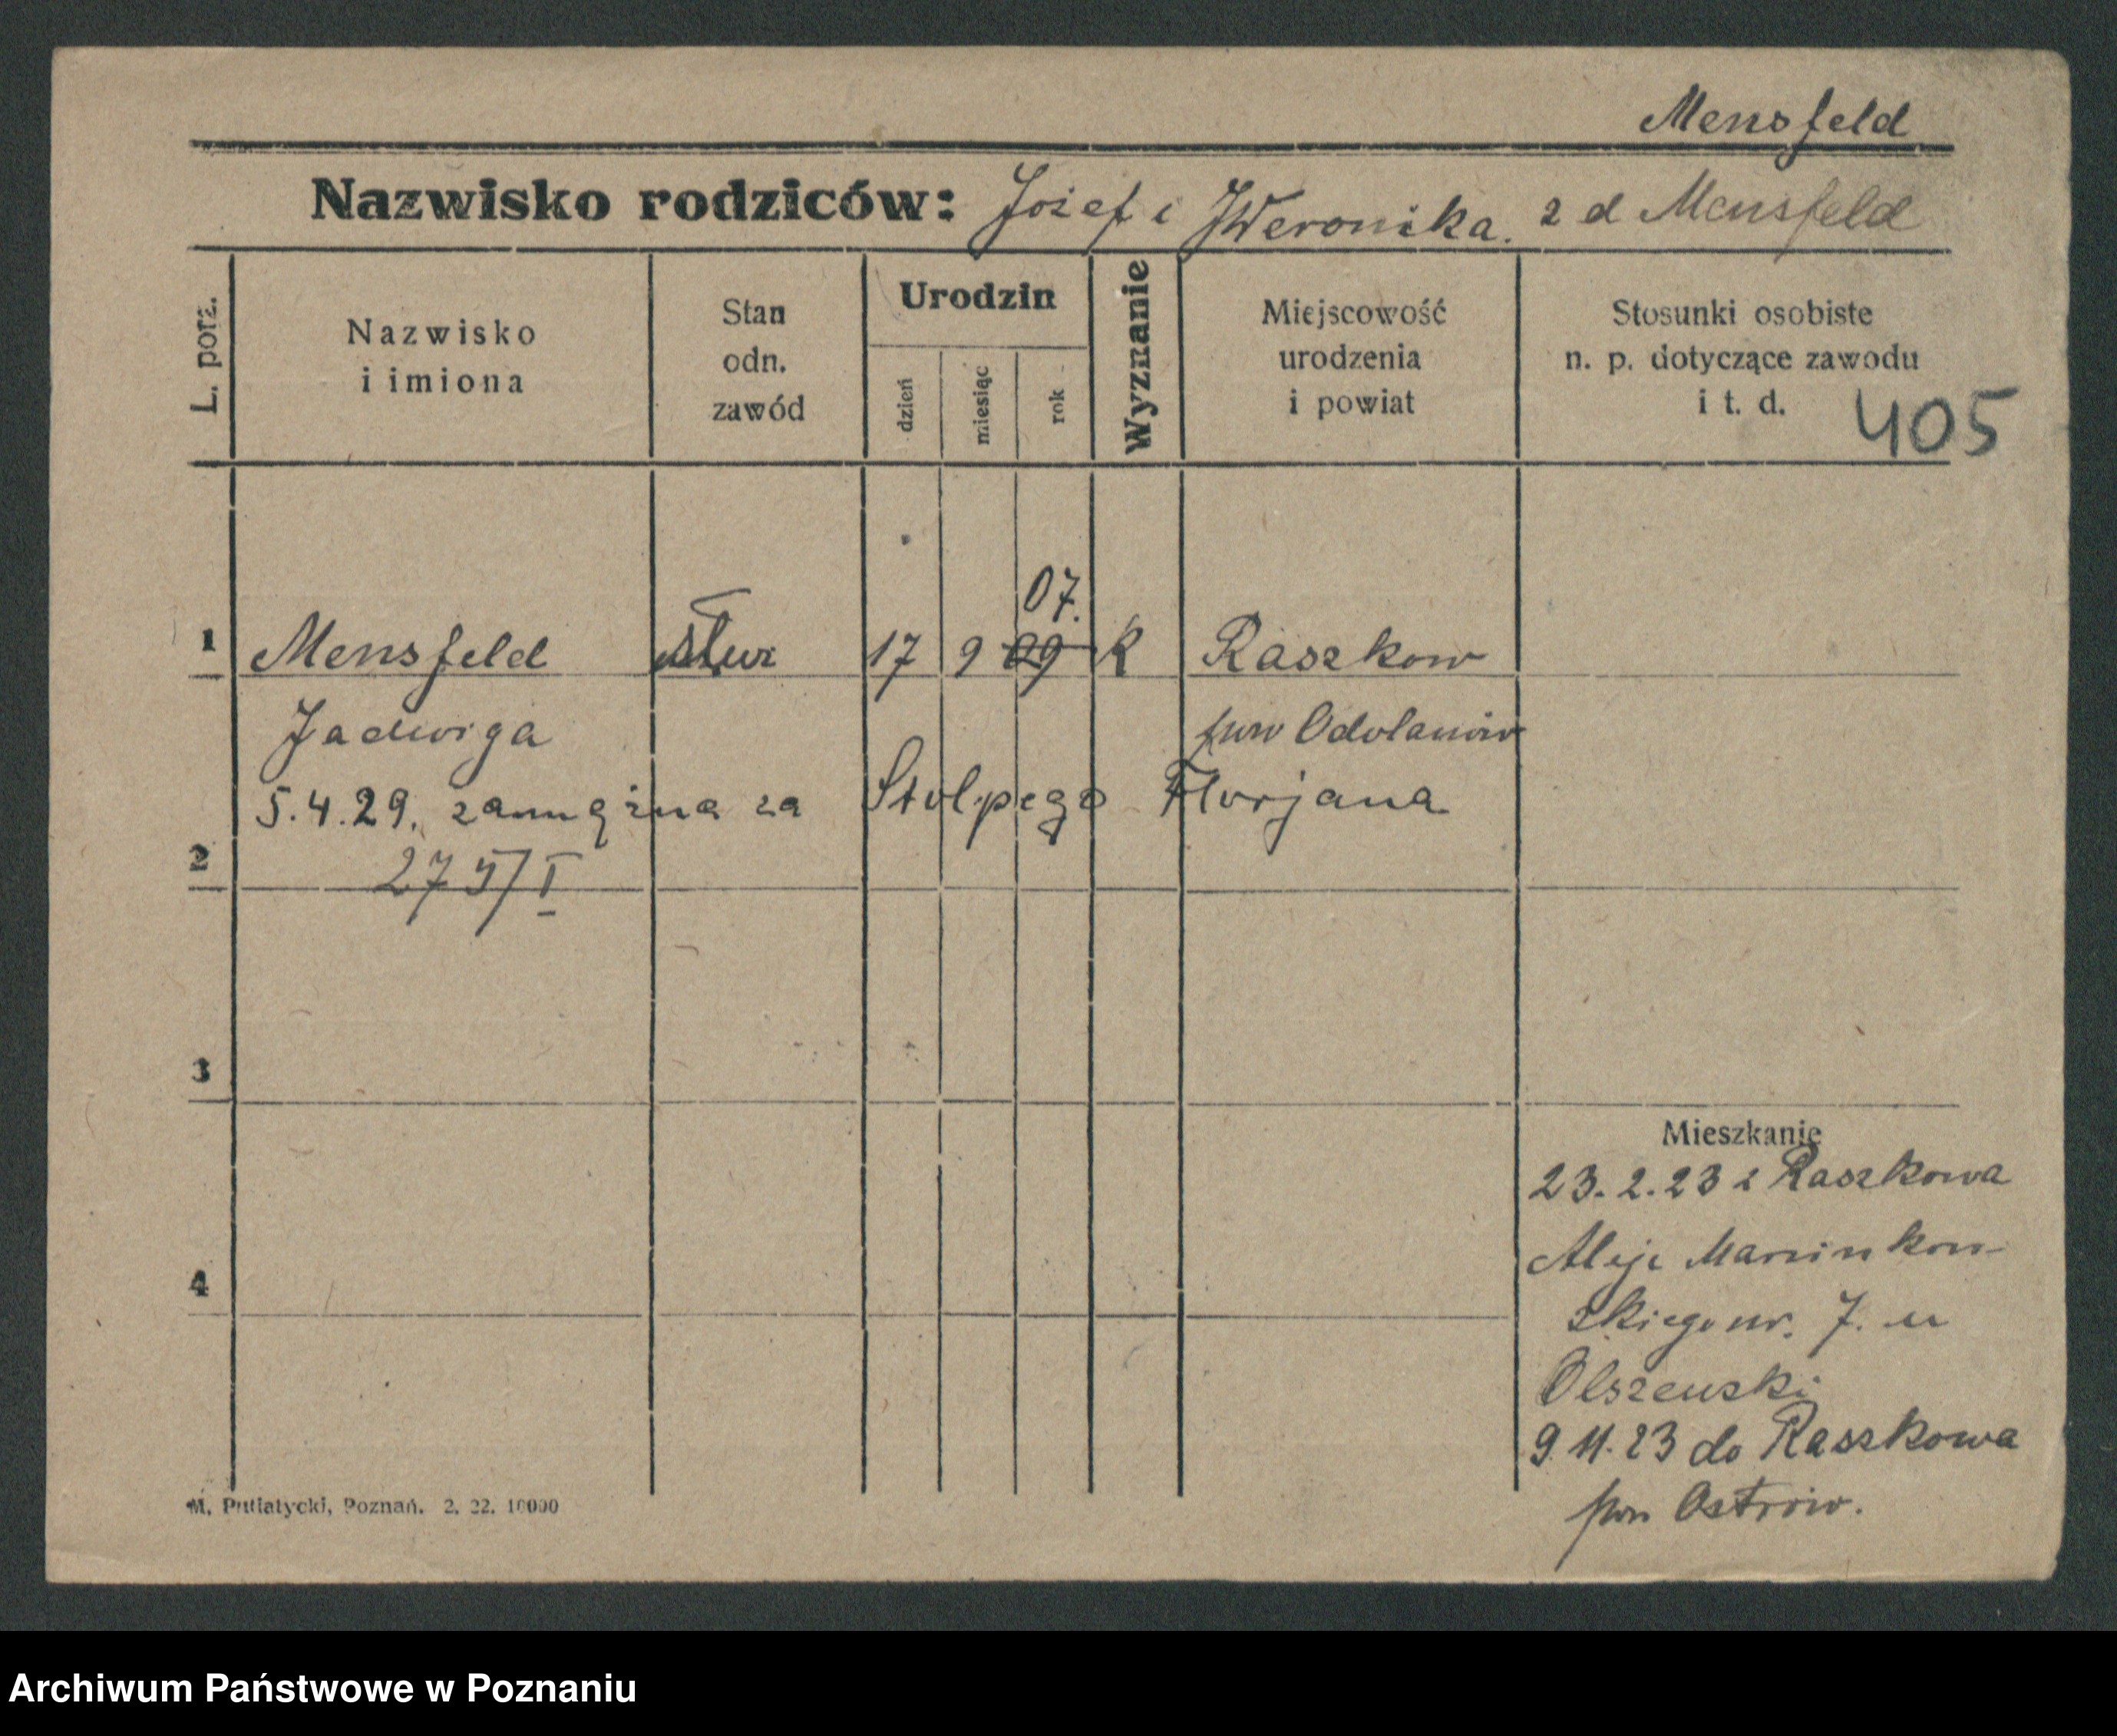 Mensfeld
Nazwisko rodziców: Józef i Weronika. z d Mensfeld
L. porz.
Nazwisko
i imiona
Stan
odn.
zawód
Urodzin
dzień
miesiąc
rok
Wyznanie
Miejscowość
urodzenia
i powiat
Stosunki osobiste
n. p. dotyczące zawodu
i t. d.
405
07.
1 Mensfeld słuz 17 9 09 K Raszkow
Jadwiga pow Odolanów
5.4.29. zamężna za Stolpego Florjana
2 275/I
3
4
Mieszkanie
23.2.23 z Raszkowa
Aleje Marcinkow
skiego nr. 7. u
Olszewski
9 11.23 do Raszkowa
pow Ostrów.
M. Putiatycki, Poznań. 2. 22. 10000
Archiwum Państwowe w Poznaniu